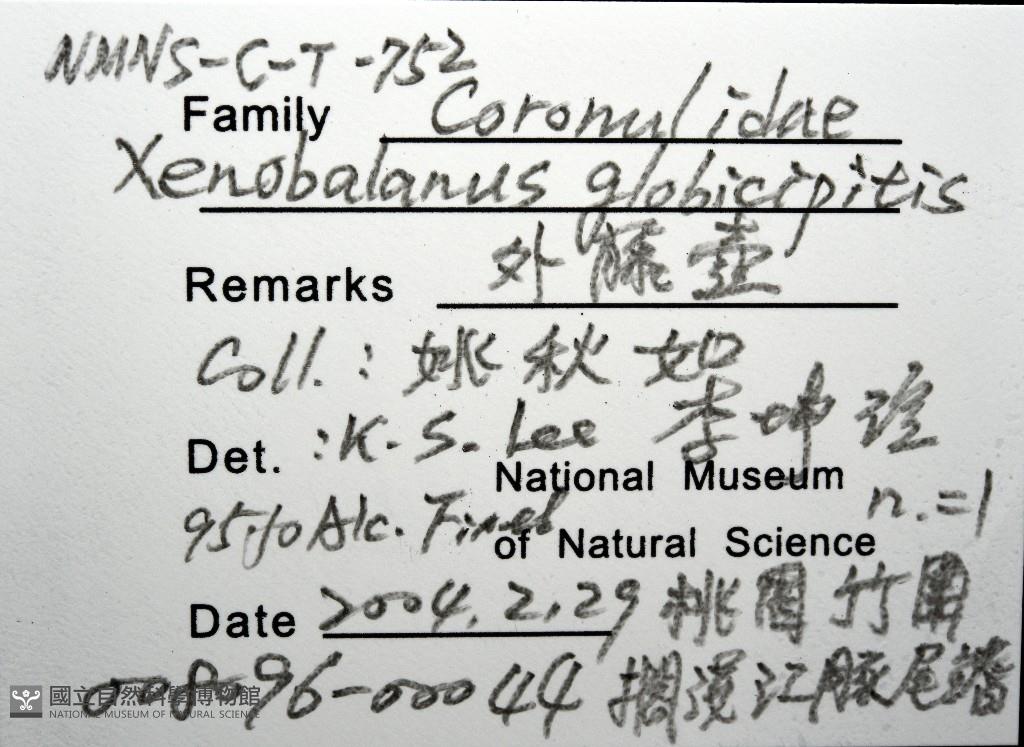 NMNS-C-T-752
Family Coronulidae
Xenobalanus globicipitis
Remarks 外藤壺
Coll.: 姚秋如
Det. :K.S. Lee 李坤瑄
National Museum
95% Alc. Fixed n.=1
of Natural Science
Date 2004.2.29 桃園竹圍
96-00044 擱淺江豚尾鰭
國立自然科學博物館
NATIONAL MUSEUM OF NATURAL SCIENCE